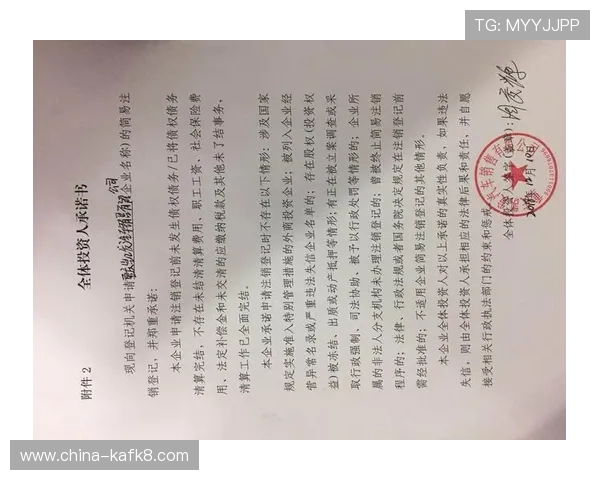 TG: MYYJJPP
附件 2
全体投资人承诺书
现向登记机关申请 公司(企业名称)的简易注
销登记，并郑重承诺：
本企业申请注销登记前未发生债权债务/已将债权债务
清算完结，不存在未结清清算费用、职工工资、社会保险费
用、法定补偿金和未交清的应缴纳税款及其他未了结事务，
清算工作已全面完结。
本企业承诺申请注销登记时不存在以下情形：涉及国家
规定实施准入特别管理措施的外商投资企业；被列入企业经
营异常名录或严重违法失信企业名单的；存在股权(投资权
益)被冻结、出质或动产抵押等情形；有正在被立案调查或采
取行政强制、司法协助、被予以行政处罚等情形的；企业所
属的非法人分支机构未办理注销登记的；曾被终止简易注销
程序的；法律、行政法规或者国务院决定规定在注销登记前
需经批准的；不适用企业简易注销登记的其他情形。
本企业全体投资人对以上承诺的真实性负责，如果违法
失信，则由全体投资人承担相应的法律后果和责任，并自愿
接受相关行政执法部门的约束和惩戒。
全体投资人签字
www.china-kafk8.com